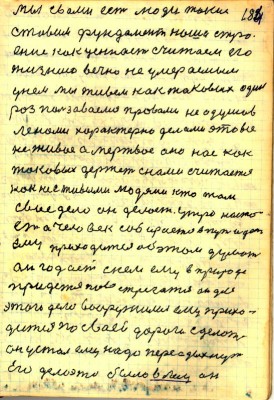 184
мы свами ест люди такие
ставим фундамент наша стро-
ение как ценност считаем его
жизнию вечно не умераемыи
унем мы живем как таковых один
роз ползаваемо провами не одушов
леноми характерно делами это все
не живое а мертвое оно нас как
таковых держет снами считается
как нестивыми людями кто там
свае дело он делает. утро насто-
ет а человек собирается в пут идет
Ему приходится об этом думат
он годает скем ему в природе
придется повстречатся он для
этого дело вооружился ему прихо-
дится посваей дороги сделат
он устал ему надо передыхнут
Его дело это было он